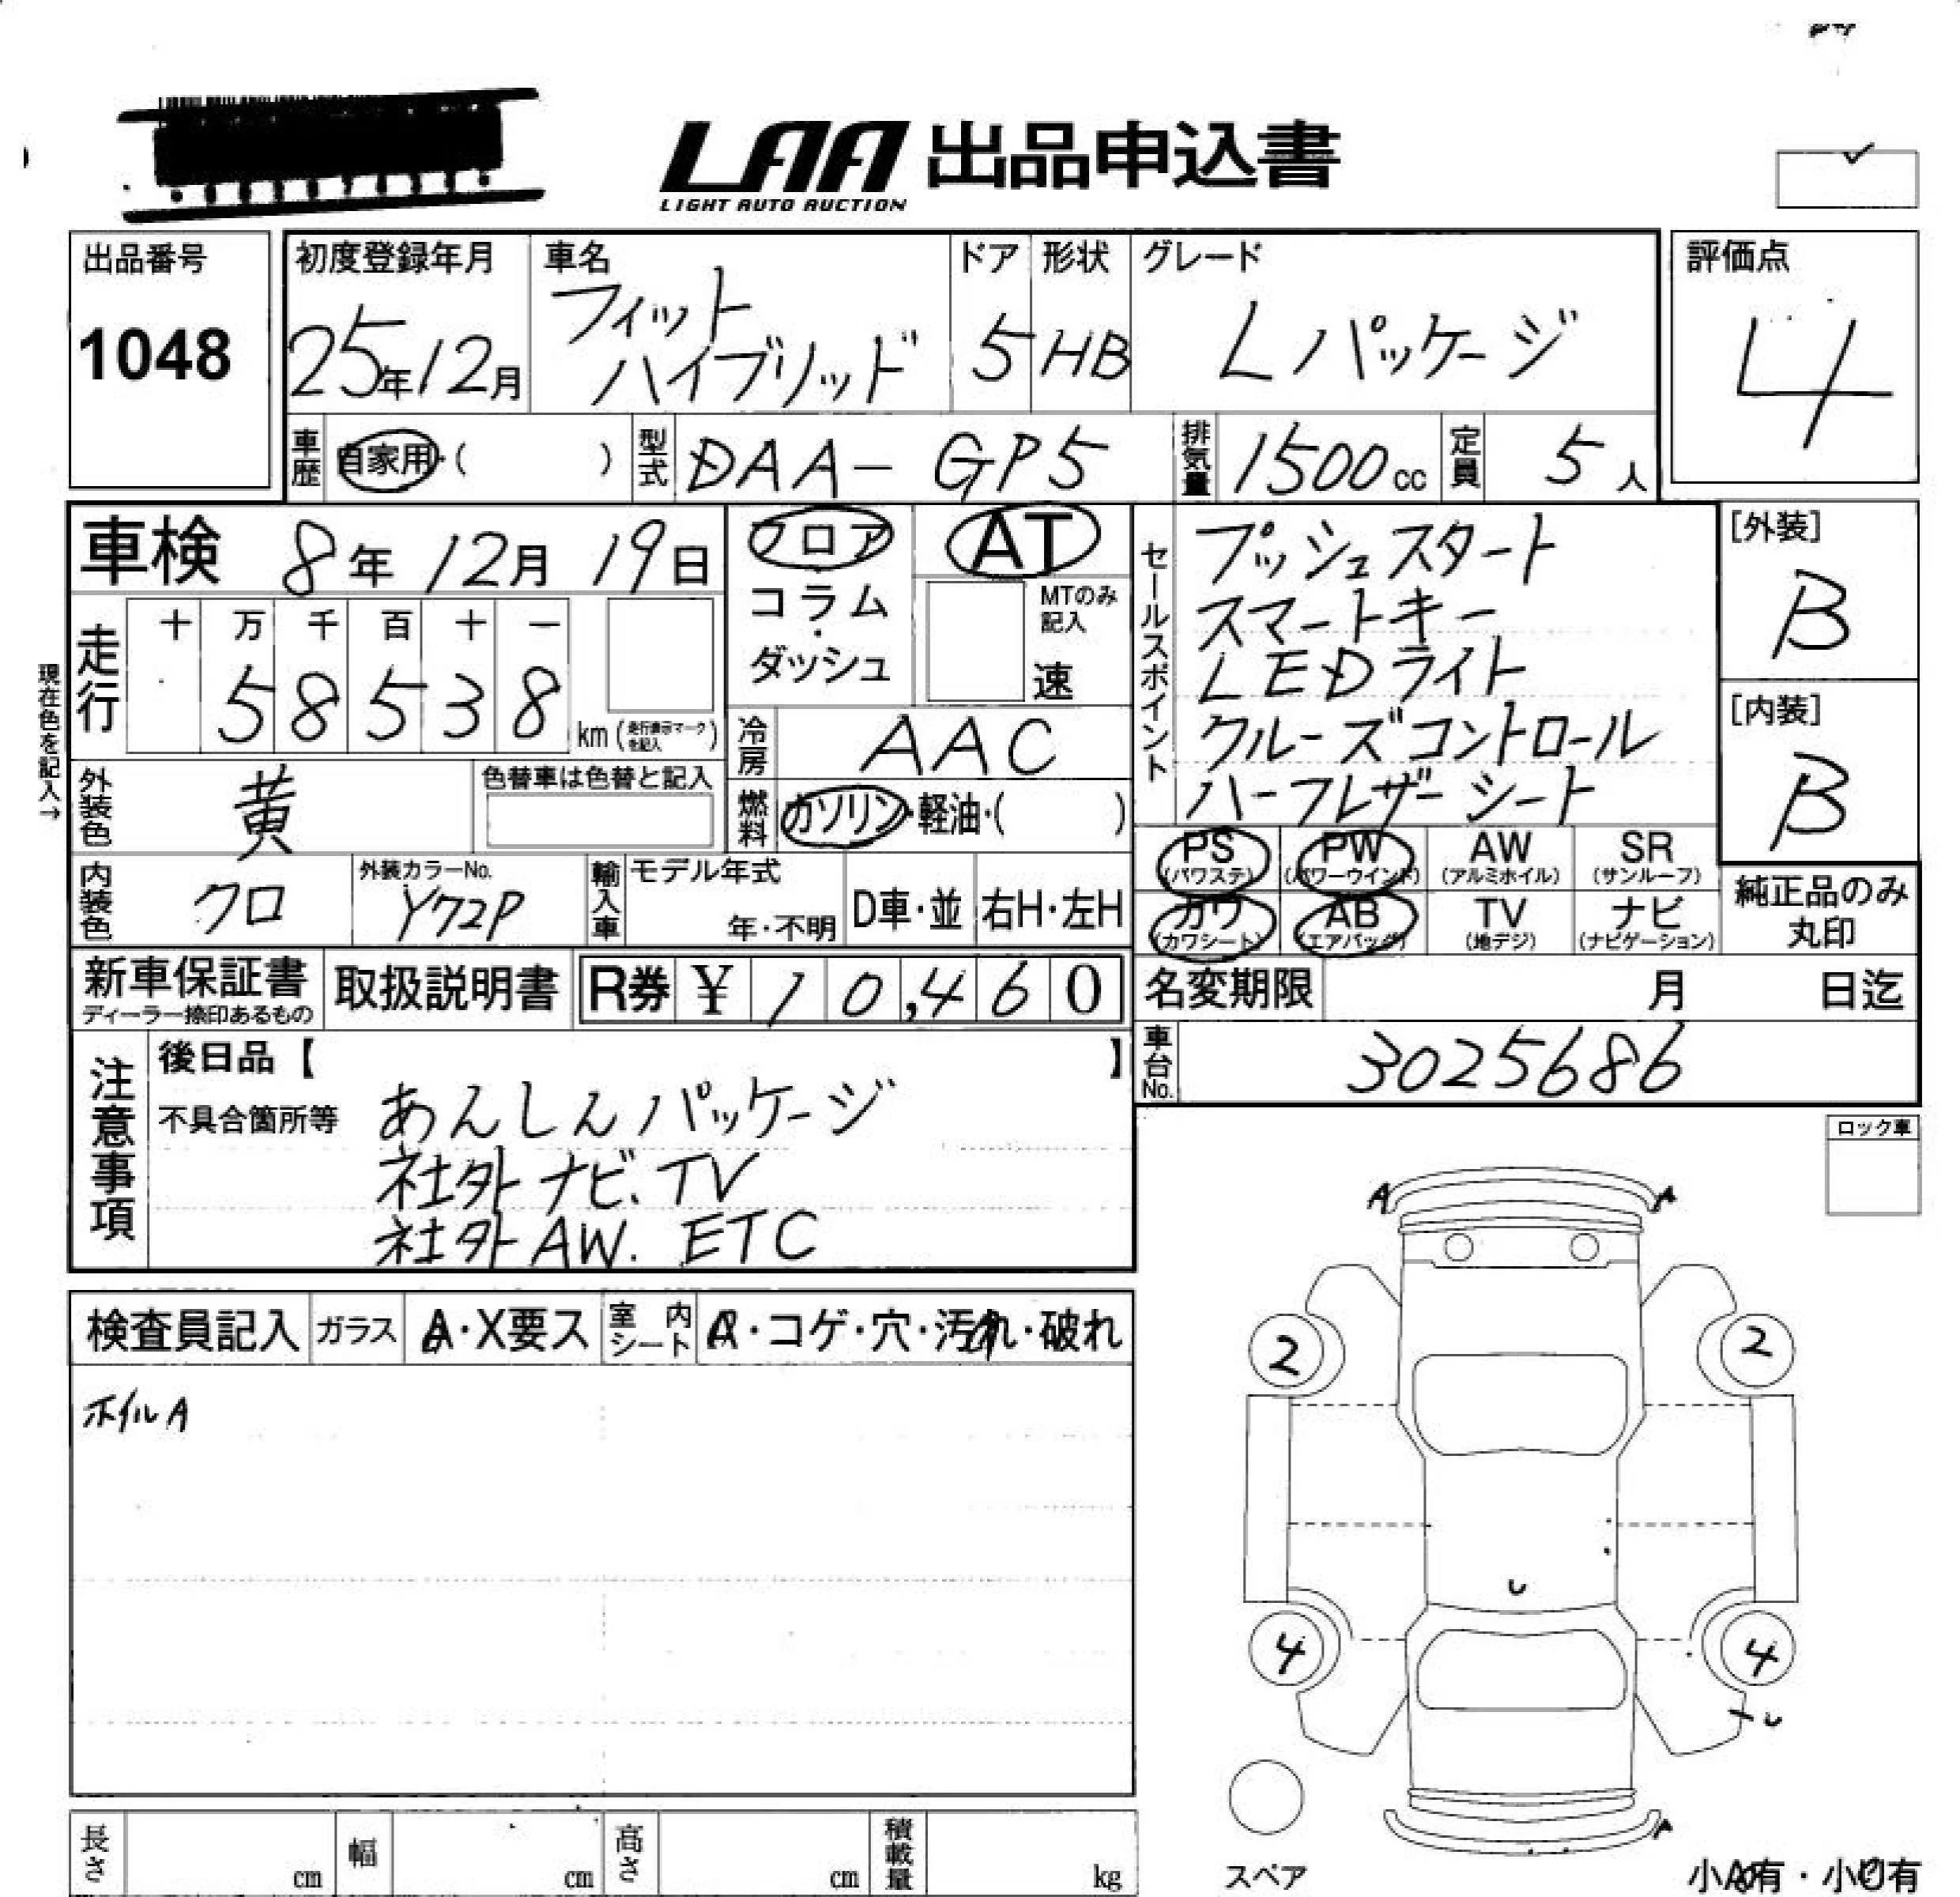 LAA 出品申込書
LIGHT AUTO AUCTION
出品番号
1048
初度登録年月
25年12月
車名
フィット
ハイブリッド
ドア
5
形状
HB
グレード
Lパッケージ
評価点
4
車歴 自家用・( )
型式 DAA- GP5
排気量 1500cc
定員 5人
車検 8年12月19日
フロア
・
コラム
・
ダッシュ
AT
MTのみ
記入
速
現在色を記入→
走行
十 万 千 百 十 一
5 8 5 3 8
km(走行表示マークを記入)
冷房 AAC
外装色 黄
色替車は色替と記入
燃料 ガソリン・軽油・( )
内装色 クロ
外装カラーNo.
Y72P
輸入車
モデル年式
年・不明
D車・並
右H・左H
セールスポイント
プッシュスタート
スマートキー
LEDライト
クルーズコントロール
ハーフレザーシート
[外装]
B
[内装]
B
PS
(パワステ)
PW
(パワーウインド)
AW
(アルミホイル)
SR
(サンルーフ)
カワ
(カワシート)
AB
(エアバッグ)
TV
(地デジ)
ナビ
(ナビゲーション)
純正品のみ
丸印
新車保証書
ディーラー捺印あるもの
取扱説明書
R券 ¥ 10,460
名変期限 月 日迄
車台No. 3025686
注意事項
後日品【 】
不具合箇所等
あんしんパッケージ
社外ナビ、TV
社外AW. ETC
ロック車
検査員記入
ガラス
A・X要ス
室内
シート
A・コゲ・穴・汚れ・破れ
ホイルA
A A
2 2
4 4
A
スペア
小A有・小凹有
長さ cm
幅 cm
高さ cm
積載量 kg